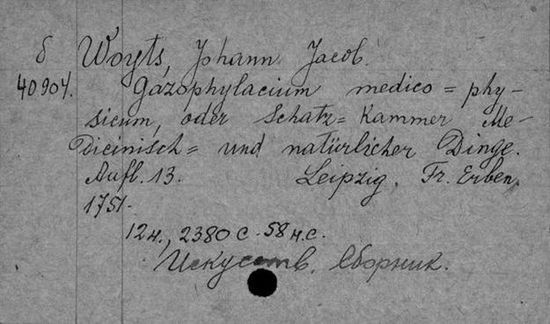 б Woyts, Johann Jacob.
40904. Gazophylacium medico = phy-
sicum, oder Schatz = Kammer Me-
dicinisch = und natürlicher Dinge.
Aufl. 13. Leipzig, Fr. Erben,
1751.
12н., 2380 с. 58 н.с.
Искусств. Сборник.